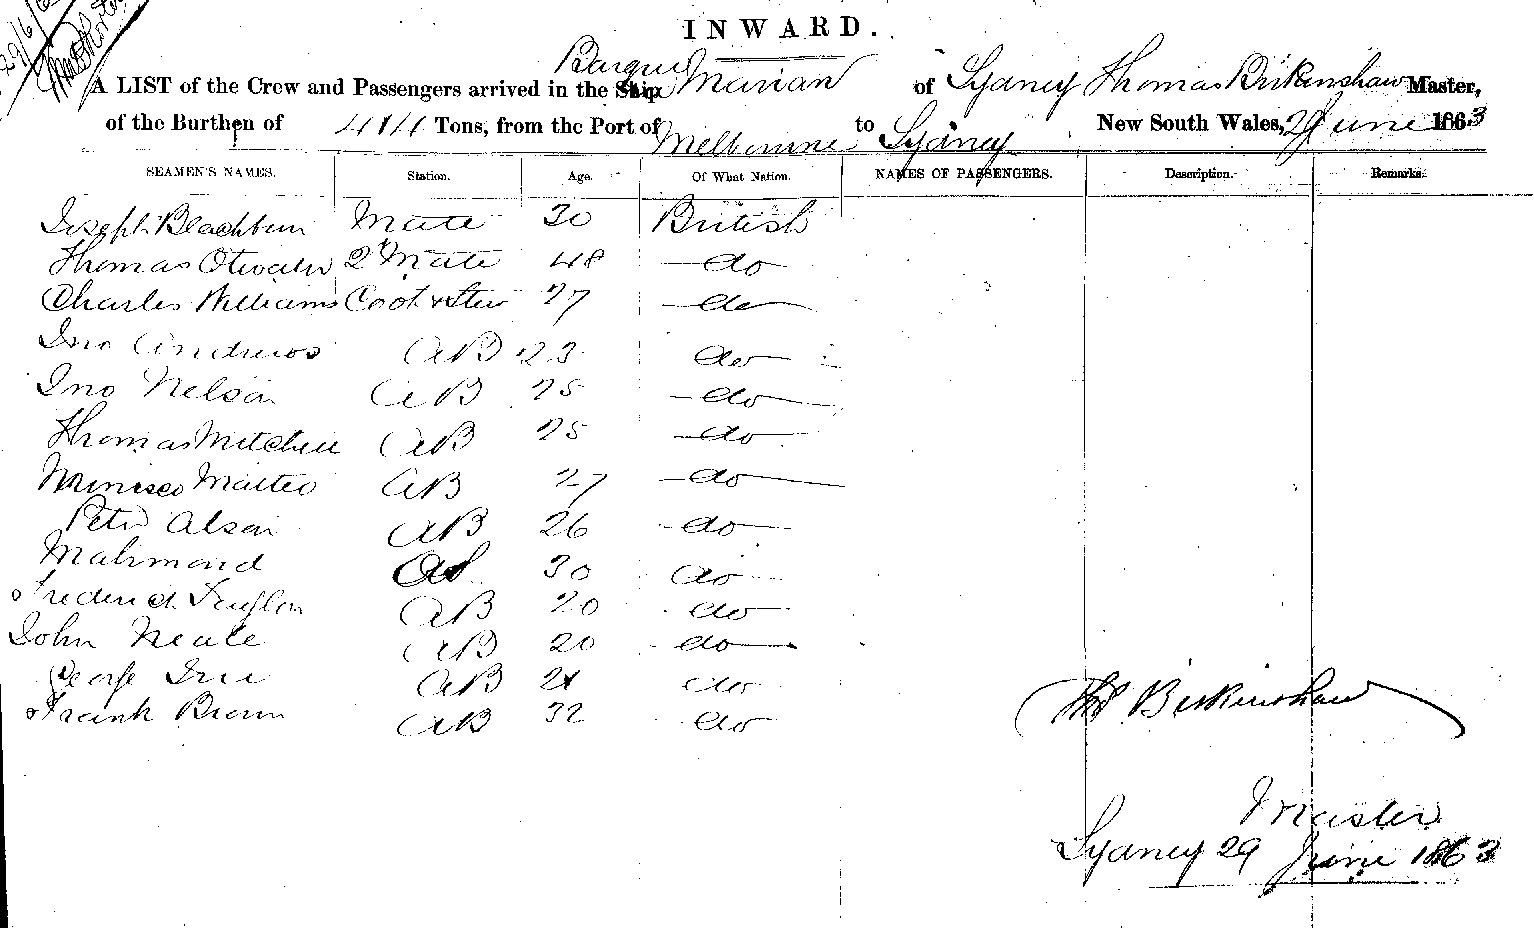 29/6/63
INWARD.
Barque
A LIST of the Crow and Passengers arrived in the Ship Marian of Sydney Thomas Birkenshaw Master,
of the Burthen of 414 Tons, from the Port of Melbourne to Sydney New South Wales, 29 June 1863
SEAMEN'S NAMES. Station. Age. Of What Nation. NAMES OF PASSENGERS. Description. Remarks.
Joseph Blackburn Mate 30 British
Thomas 2d Mate 48 do
Charles Williams Cook & Stew 27 do
Jno Andrews AB 23 do
Jno Nelson AB 25 do
Thomas Mitchell AB 25 do
Matteo AB 27 do
Peter Alson AB 26 do
Mahmond 30 do
Frederick AB 20 do
John Neale AB 20 do
George AB 21 do
Frank Brown AB 32 do
Thos Birkinshaw
Master
Sydney 29 June 1863